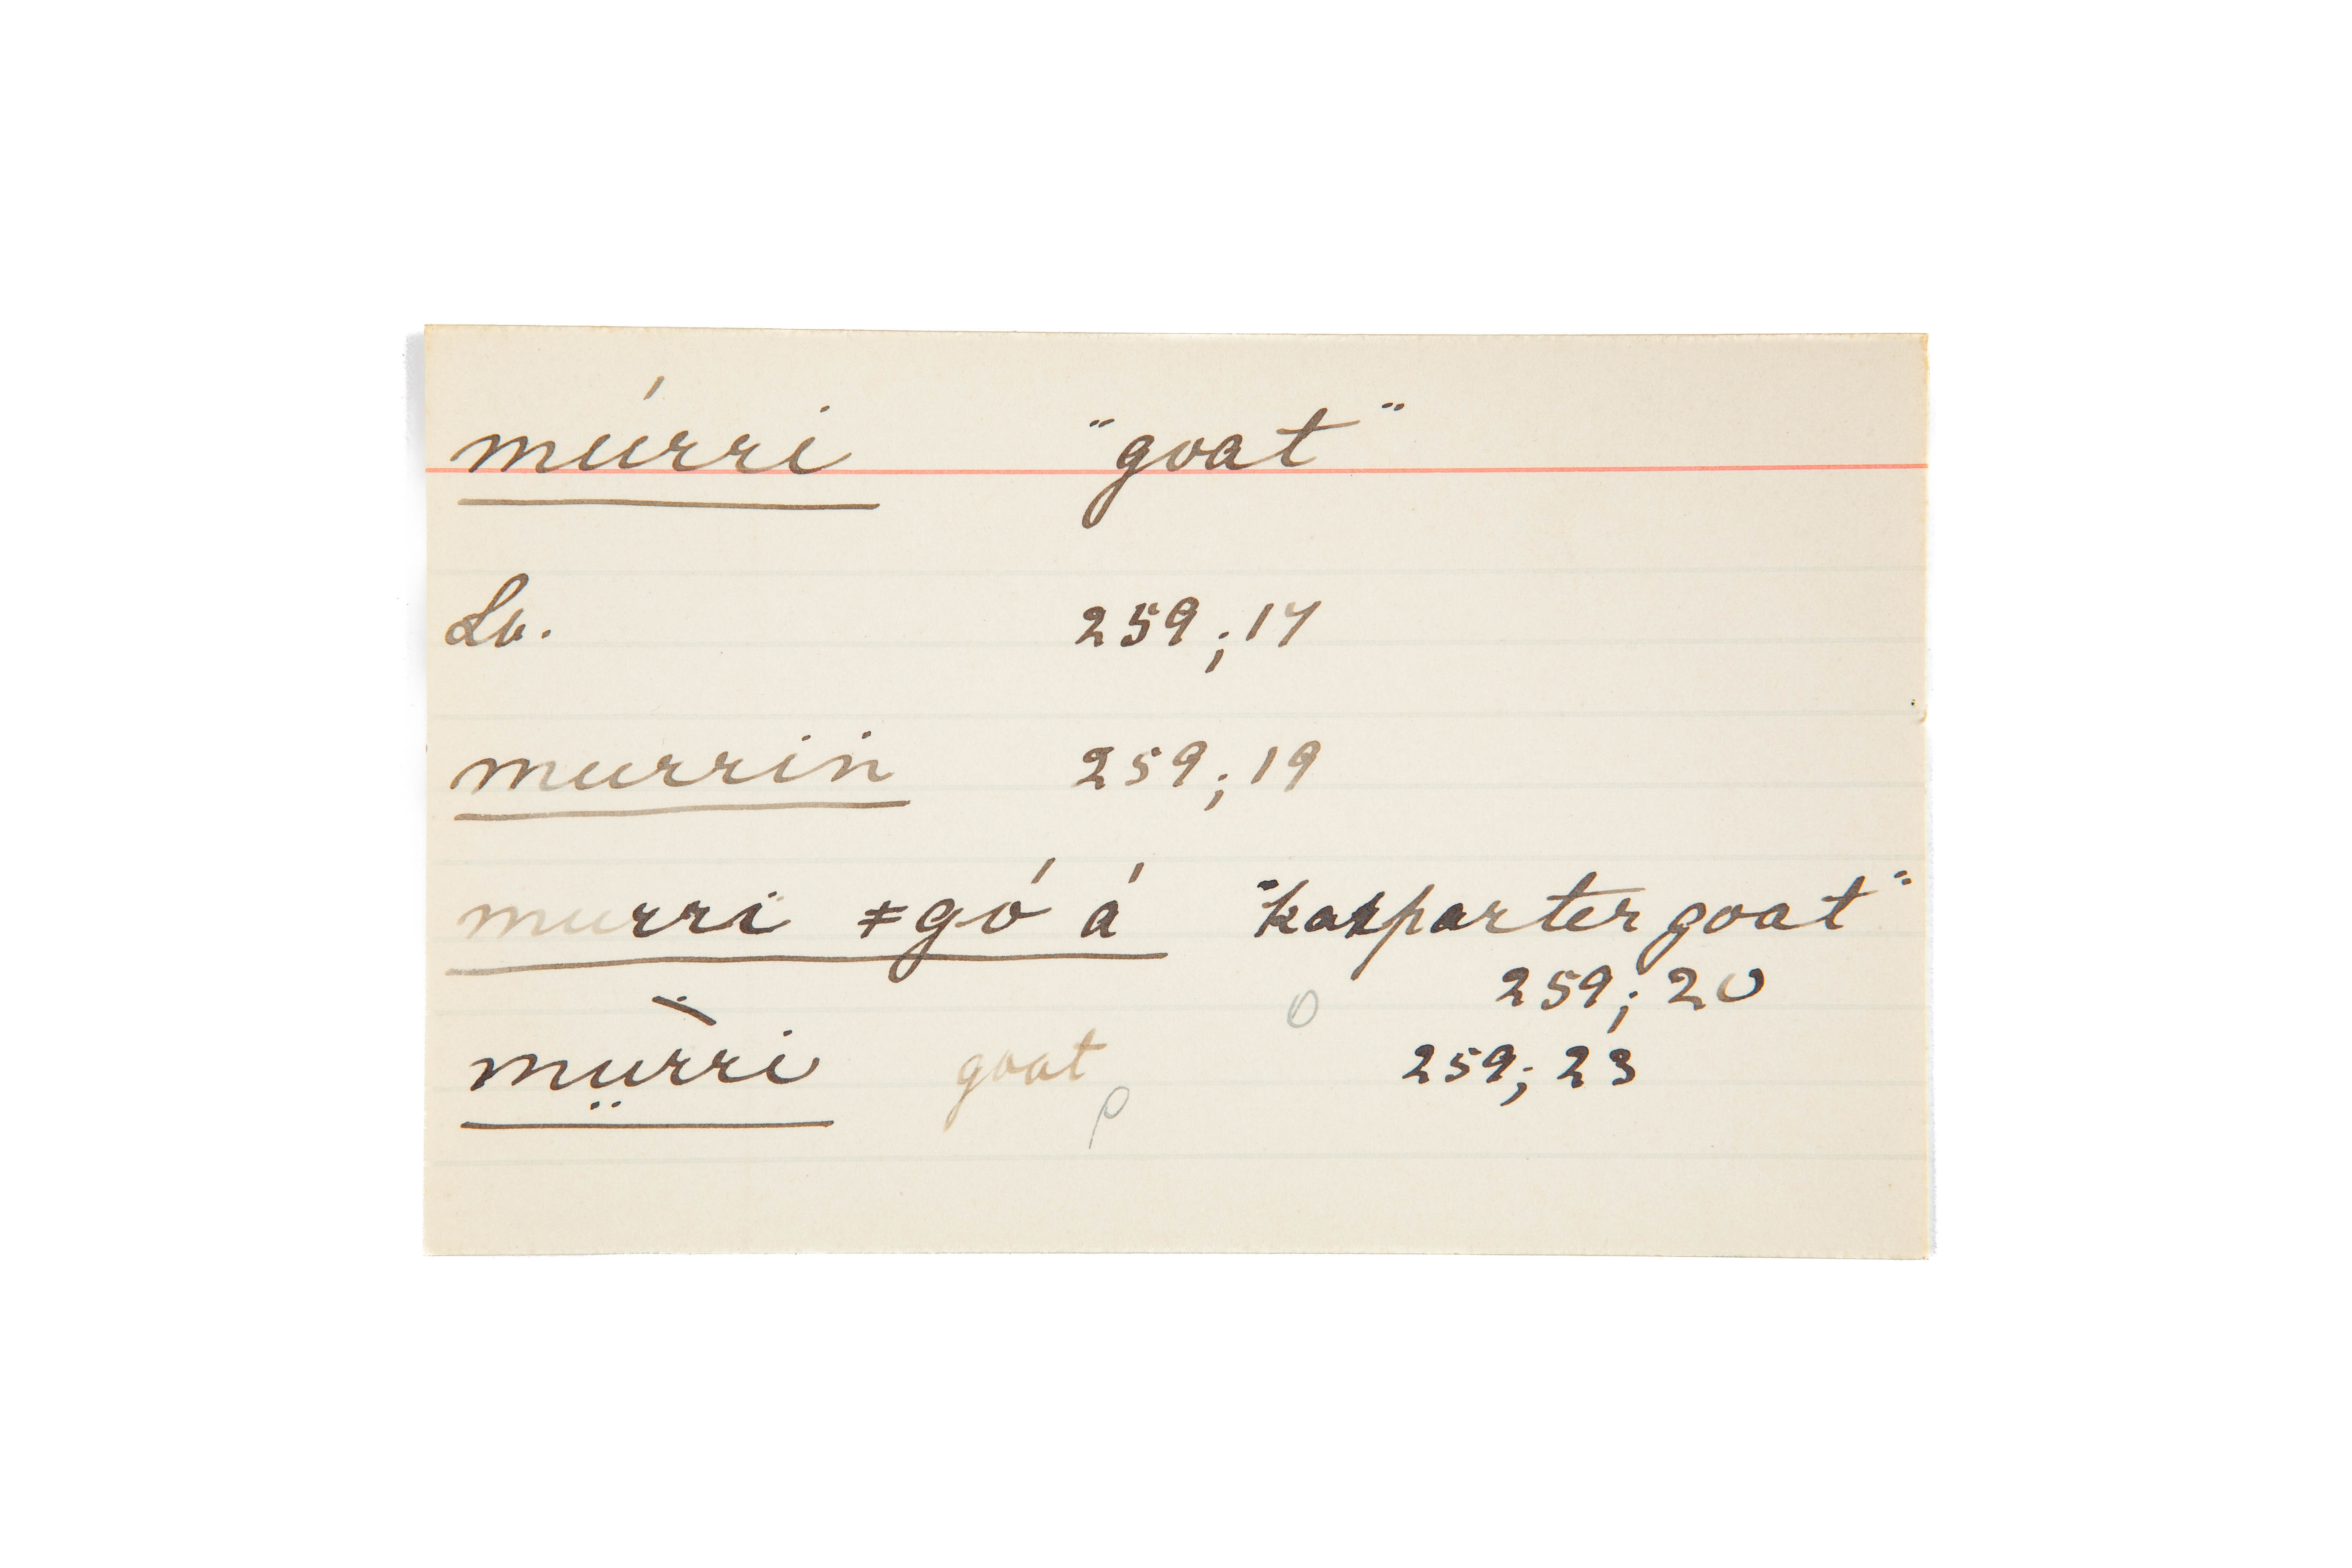 múrri "goat"
Lv. 259; 17
murrin 259; 19
murri ǂgó á "kasparter goat"
259; 20
mṳ̀rri goat 259; 23